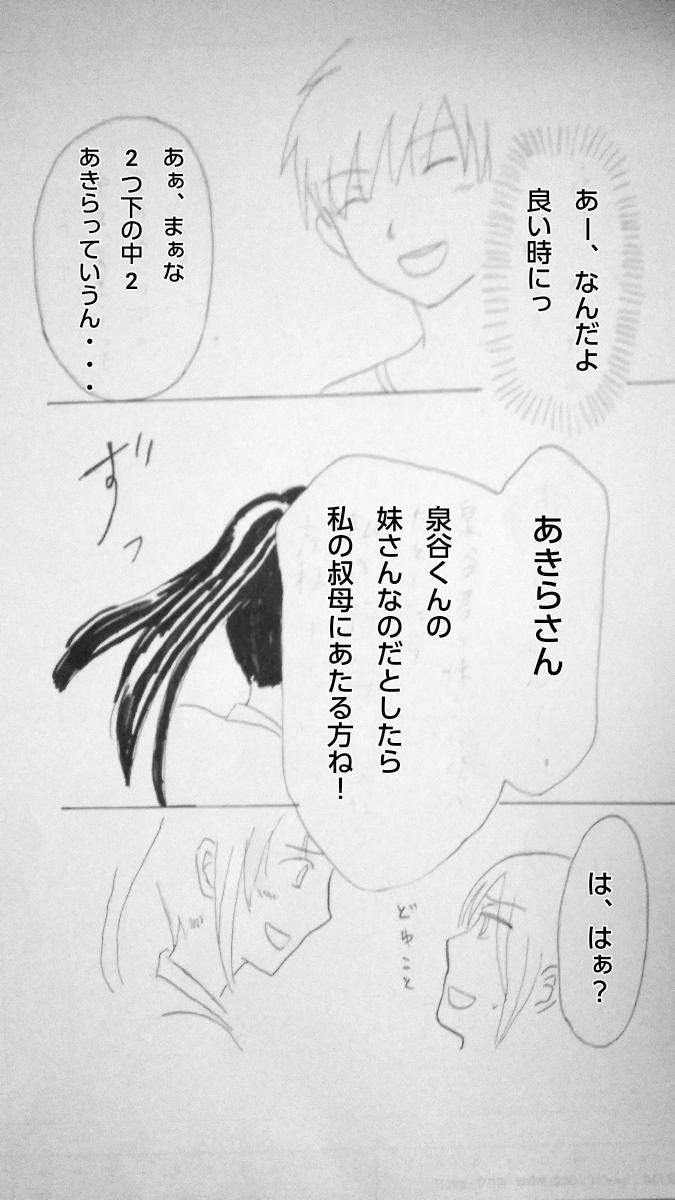 あー、なんだよ
良い時にっ
あぁ、まぁな
2つ下の中2
あきらっていうん・・・
あきらさん
泉谷くんの
妹さんなのだとしたら
私の叔母にあたる方ね！
ずっ
は、はぁ？
どゆこと